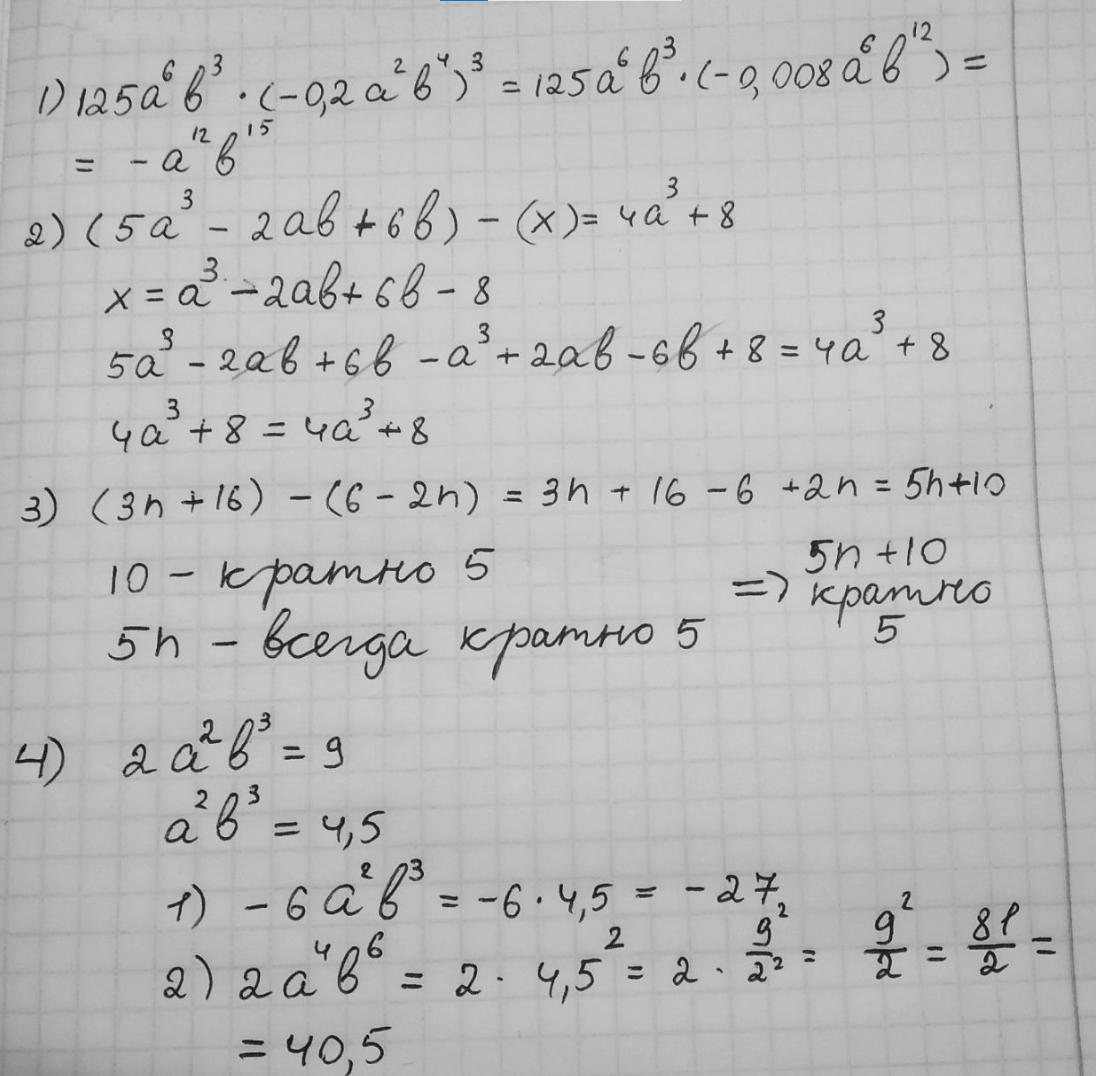 1) 125a⁶b³ · (-0,2a²b⁴)³ = 125a⁶b³ · (-0,008a⁶b¹²) =
= -a¹²b¹⁵
2) (5a³ - 2ab + 6b) - (x) = 4a³ + 8
x = a³ - 2ab + 6b - 8
5a³ - 2ab + 6b - a³ + 2ab - 6b + 8 = 4a³ + 8
4a³ + 8 = 4a³ + 8
3) (3n + 16) - (6 - 2n) = 3n + 16 - 6 + 2n = 5n + 10
10 - кратно 5
5n - всегда кратно 5
=> 5n + 10
кратно
5
4) 2a²b³ = 9
a²b³ = 4,5
1) -6a²b³ = -6 · 4,5 = -27
2) 2a⁴b⁶ = 2 · 4,5² = 2 · 9²/2² = 9²/2 = 81/2 =
= 40,5